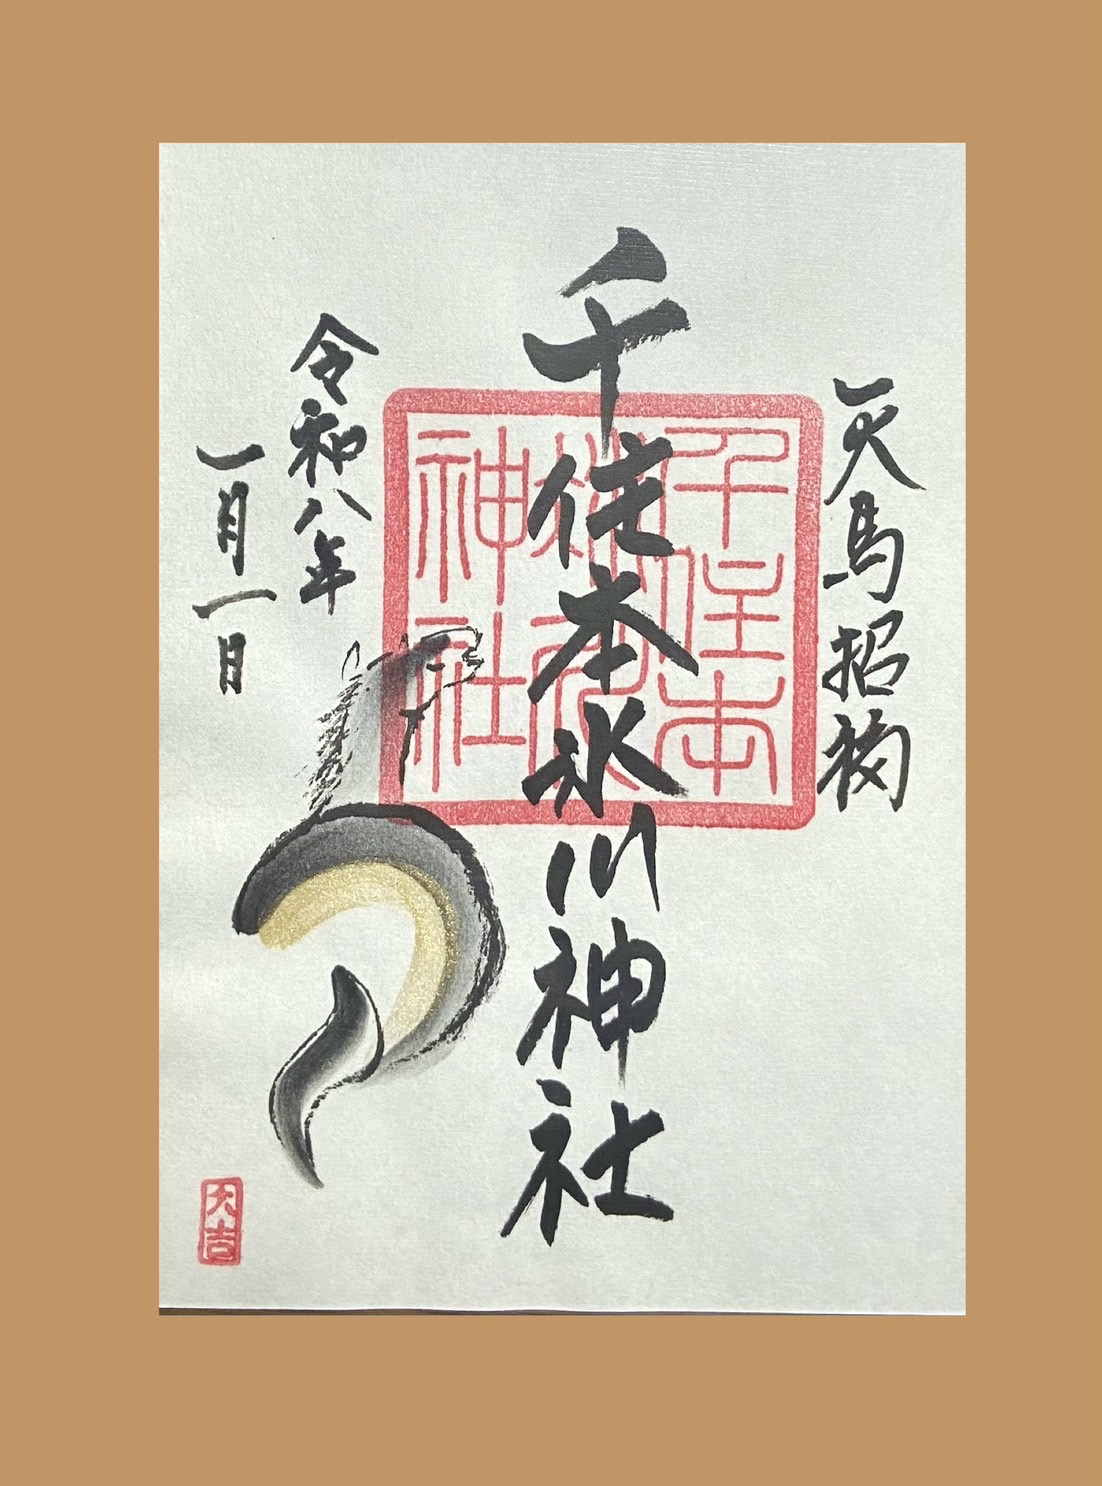 天馬招福
千住本氷川神社
千住本
氷川
神社
令和八年
一月一日
大吉